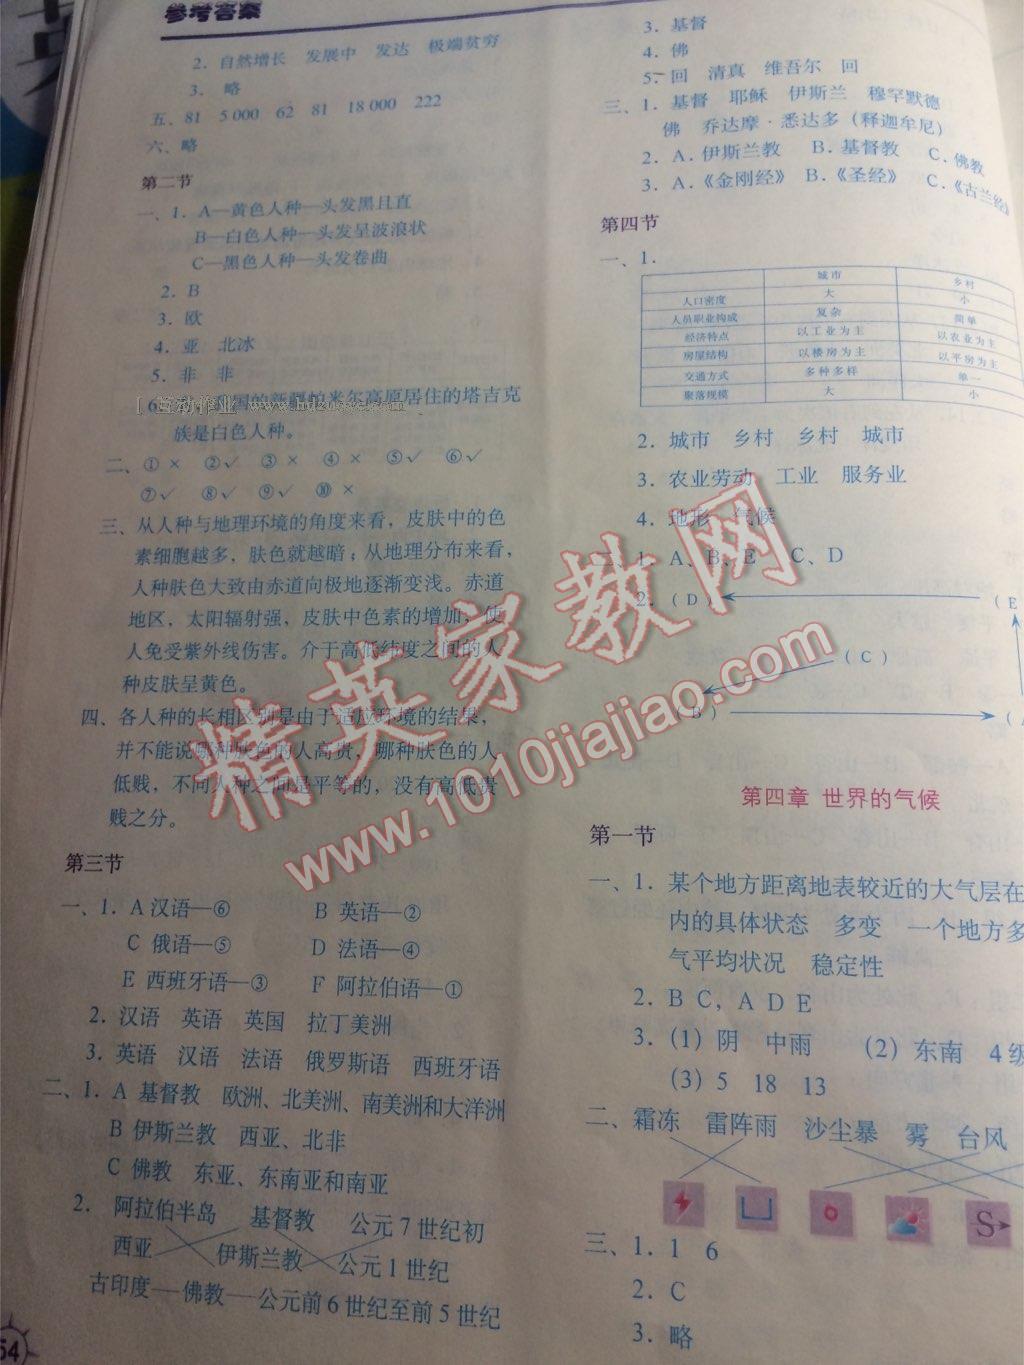 参考答案
2．自然增长　发展中　发达　极端贫穷
3．略
五、81　5 000　62　81　18 000　222
六、略
第二节
一、1．A—黄色人种—头发黑且直
B—白色人种—头发呈波浪状
C—黑色人种—头发卷曲
2．B
3．欧
4．亚　北冰
5．非　非
6．的新疆帕米尔高原居住的塔吉克
族是白色人种。
二、①×　②✓　③×　④×　⑤✓　⑥✓
⑦✓　⑧✓　⑨✓　⑩×
三、从人种与地理环境的角度来看，皮肤中的色
素细胞越多，肤色就越暗；从地理分布来看，
人种肤色大致由赤道向极地逐渐变浅。赤道
地区，太阳辐射强，皮肤中色素的增加，使
人免受紫外线伤害。介于高低纬度之间的人
种皮肤呈黄色。
四、各人种的长相区别是由于适应环境的结果，
并不能说哪种肤色的人高贵，哪种肤色的人
低贱，不同人种之间是平等的，没有高低贵
贱之分。
第三节
一、1．A 汉语—⑥　B 英语—②
C 俄语—⑤　D 法语—④
E 西班牙语—③　F 阿拉伯语—①
2．汉语　英语　英国　拉丁美洲
3．英语　汉语　法语　俄罗斯语　西班牙语
二、1．A 基督教　欧洲、北美洲、南美洲和大洋洲
B 伊斯兰教　西亚、北非
C 佛教　东亚、东南亚和南亚
2．阿拉伯半岛　基督教　公元 7 世纪初
西亚　伊斯兰教　公元 1 世纪
古印度—佛教—公元前 6 世纪至前 5 世纪
64
3．基督
4．佛
5．回　清真　维吾尔　回
三、1．基督　耶稣　伊斯兰　穆罕默德
佛　乔达摩·悉达多（释迦牟尼）
2．A．伊斯兰教　B．基督教　C．佛教
3．A．《金刚经》　B．《圣经》　C．《古兰经》
第四节
一、1．
城市　乡村
人口密度　大　小
人员职业构成　复杂　简单
经济特点　以工业为主　以农业为主
房屋结构　以楼房为主　以平房为主
交通方式　多种多样　单一
聚落规模　大　小
2．城市　乡村　乡村　城市
3．农业劳动　工业　服务业
4．地形　气候
二、1．A、B、E　C、D
2．（D）　（E
（C）
（B）　（A
第四章 世界的气候
第一节
一、1．某个地方距离地表较近的大气层在
内的具体状态　多变　一个地方多
气平均状况　稳定性
2．B C，A D E
3．(1) 阴　中雨　(2) 东南　4 级
(3) 5　18　13
二、霜冻　雷阵雨　沙尘暴　雾　台风
S
三、1．1　6
2．C
3．略
精英家教网
www.1010jiajiao.com